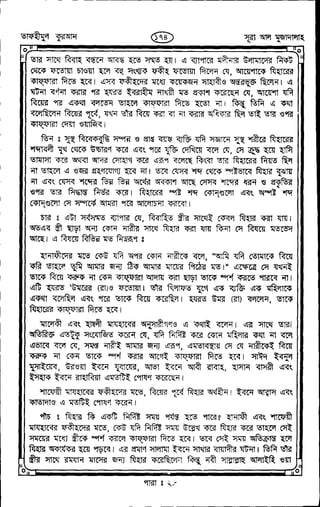 তাফহীমুল কুরআন ১৭৪ সূরা আল মুজাদালাহ
তার সাথে বিবাহ বন্ধনে আবদ্ধ হতে সম্মত হয়। এ ব্যাপারে মদীনার উলামাদের নিকট
থেকে ফতোয়া চাওয়া হলে বহু সংখ্যক ফকীহ ফতোয়া দিলেন যে, আয়েশাকে যিহারের
কাফ্ফারা দিতে হবে। এসব ফকীহদের মধ্যে কয়েকজন সাহাবীও অন্তর্ভুক্ত ছিলেন। এ
ঘটনা বর্ণনা করার পর হযরত ইবরাহীম নাখয়ী মত প্রকাশ করেছেন যে, আয়েশা যদি
বিয়ের পর একথা বলতেন তাহলে কাফ্ফারা দিতে হতো না। কিন্তু তিনি এ কথা
বলেছিলেন বিয়ের পূর্বে, যখন তাঁর বিয়ে করা বা না করার অধিকার ছিল তাই তার ওপর
কাফ্ফারা দেয়া ওয়াজিব।
তিন : সুস্থ বিবেকবুদ্ধি সম্পন্ন ও প্রাপ্ত বয়স্ক ব্যক্তি যদি সজ্ঞানে সুস্থ শরীরে যিহারের
শব্দাবলী মুখ থেকে উচ্চারণ করে এবং পরে যুক্তি দেখিয়ে বলে যে, সে ক্রুদ্ধ হয়ে হাসি
তামাসা করে অথবা আদর সোহাগ করে এরূপ বলেছে কিংবা তার যিহারের নিয়ত ছিল
না তাহলে এ ওজর গ্রহণযোগ্য হবে না। তবে যেসব শব্দ থেকে স্পষ্টভাবে যিহার বুঝায়
না এবং যেসব শব্দের ভিন্ন ভিন্ন অর্থের অবকাশ আছে সেসব শব্দের ধরন ও প্রকৃতির
ওপর তার সিদ্ধান্ত নির্ভর করে। যিহারের স্পষ্ট শব্দ কোনগুলো এবং অস্পষ্ট শব্দ
কোনগুলো সে সম্পর্কে আমরা পরে আলোচনা করবো।
চার : এটা সর্বসম্মত ব্যাপার যে, বিবাহিত স্ত্রীর সাথেই কেবল যিহার করা যায়।
অতএব স্ত্রী ছাড়া অন্য কোন নারীর সাথে যিহার করা যায় কিনা সে বিষয়ে মতভেদ
আছে। এ বিষয়ে বিভিন্ন মত নিম্নরূপ :
হানাফীদের মতে কেউ যদি অপর কোন নারীকে বলে, "আমি যদি তোমাকে বিয়ে
করি তাহলে তুমি আমার জন্য ঠিক আমার মায়ের পিঠের মত।" এক্ষেত্রে সে যখনই
তাকে বিয়ে করুক না কেন কাফ্ফারা আদায় করা ছাড়া তাকে স্পর্শ করতে পারবে না।
এটি হযরত 'উমরের (রাঃ)ও ফতোয়া। তাঁর খিলাফত যুগে এক ব্যক্তি এক মহিলাকে
একথা বলেছিল এবং পরে তাকে বিয়ে করেছিল। হযরত উমর (রা) বললেন, তাকে
যিহারের কাফ্ফারা দিতে হবে।
মালেকী এবং হাম্বলী মাযহাবের অনুসারীগণও এ কথাই বলেন। এর সাথে তারা
অতিরিক্ত এতটুকু সংযোজিত করেন যে, যদি নির্দিষ্ট করে কোন মহিলার কথা না বলে
এভাবে বলে যে, সমস্ত নারীই আমার জন্য এরূপ, এমতাবস্থায় সে যে নারীকেই বিয়ে
করুক না কেন তাকে স্পর্শ করার আগেই কাফ্ফারা দিতে হবে। সাঈদ ইবনুল
মুসাইয়েব, উরওয়া ইবনে যুবায়ের, আতা ইবনে আবী রাবাহ, হাসান বাসরী এবং
ইসহাক ইবনে রাহাবিয়া এমতটিই পোষণ করেছেন।
শাফেয়ী মাযহাবের ফকীহদের মতে, বিয়ের পূর্বে যিহার অর্থহীন। ইবনে আব্বাস এবং
কাতাদাও এ মতটিই পোষণ করেন।
পাঁচ : যিহার কি একটি নির্দিষ্ট সময় পর্যন্ত হতে পারে? হানাফী এবং শাফেয়ী
মাযহাবের ফকীহদের মতে, কেউ যদি নির্দিষ্ট সময় উল্লেখ করে যিহার করে তাহলে সেই
সময়ের মধ্যে স্ত্রীকে স্পর্শ করলে কাফ্ফারা দিতে হবে। তবে সেই সময় অতিক্রান্ত হলে
যিহার অকার্যকর হয়ে পড়বে। এর প্রমাণ সালামা ইবনে সাখার বায়াদীর ঘটনা। তিনি তাঁর
স্ত্রীর সাথে রমযান মাসের জন্য যিহার করেছিলেন কিন্তু নবী সাল্লাল্লাহু আলাইহি ওয়া
পারা :